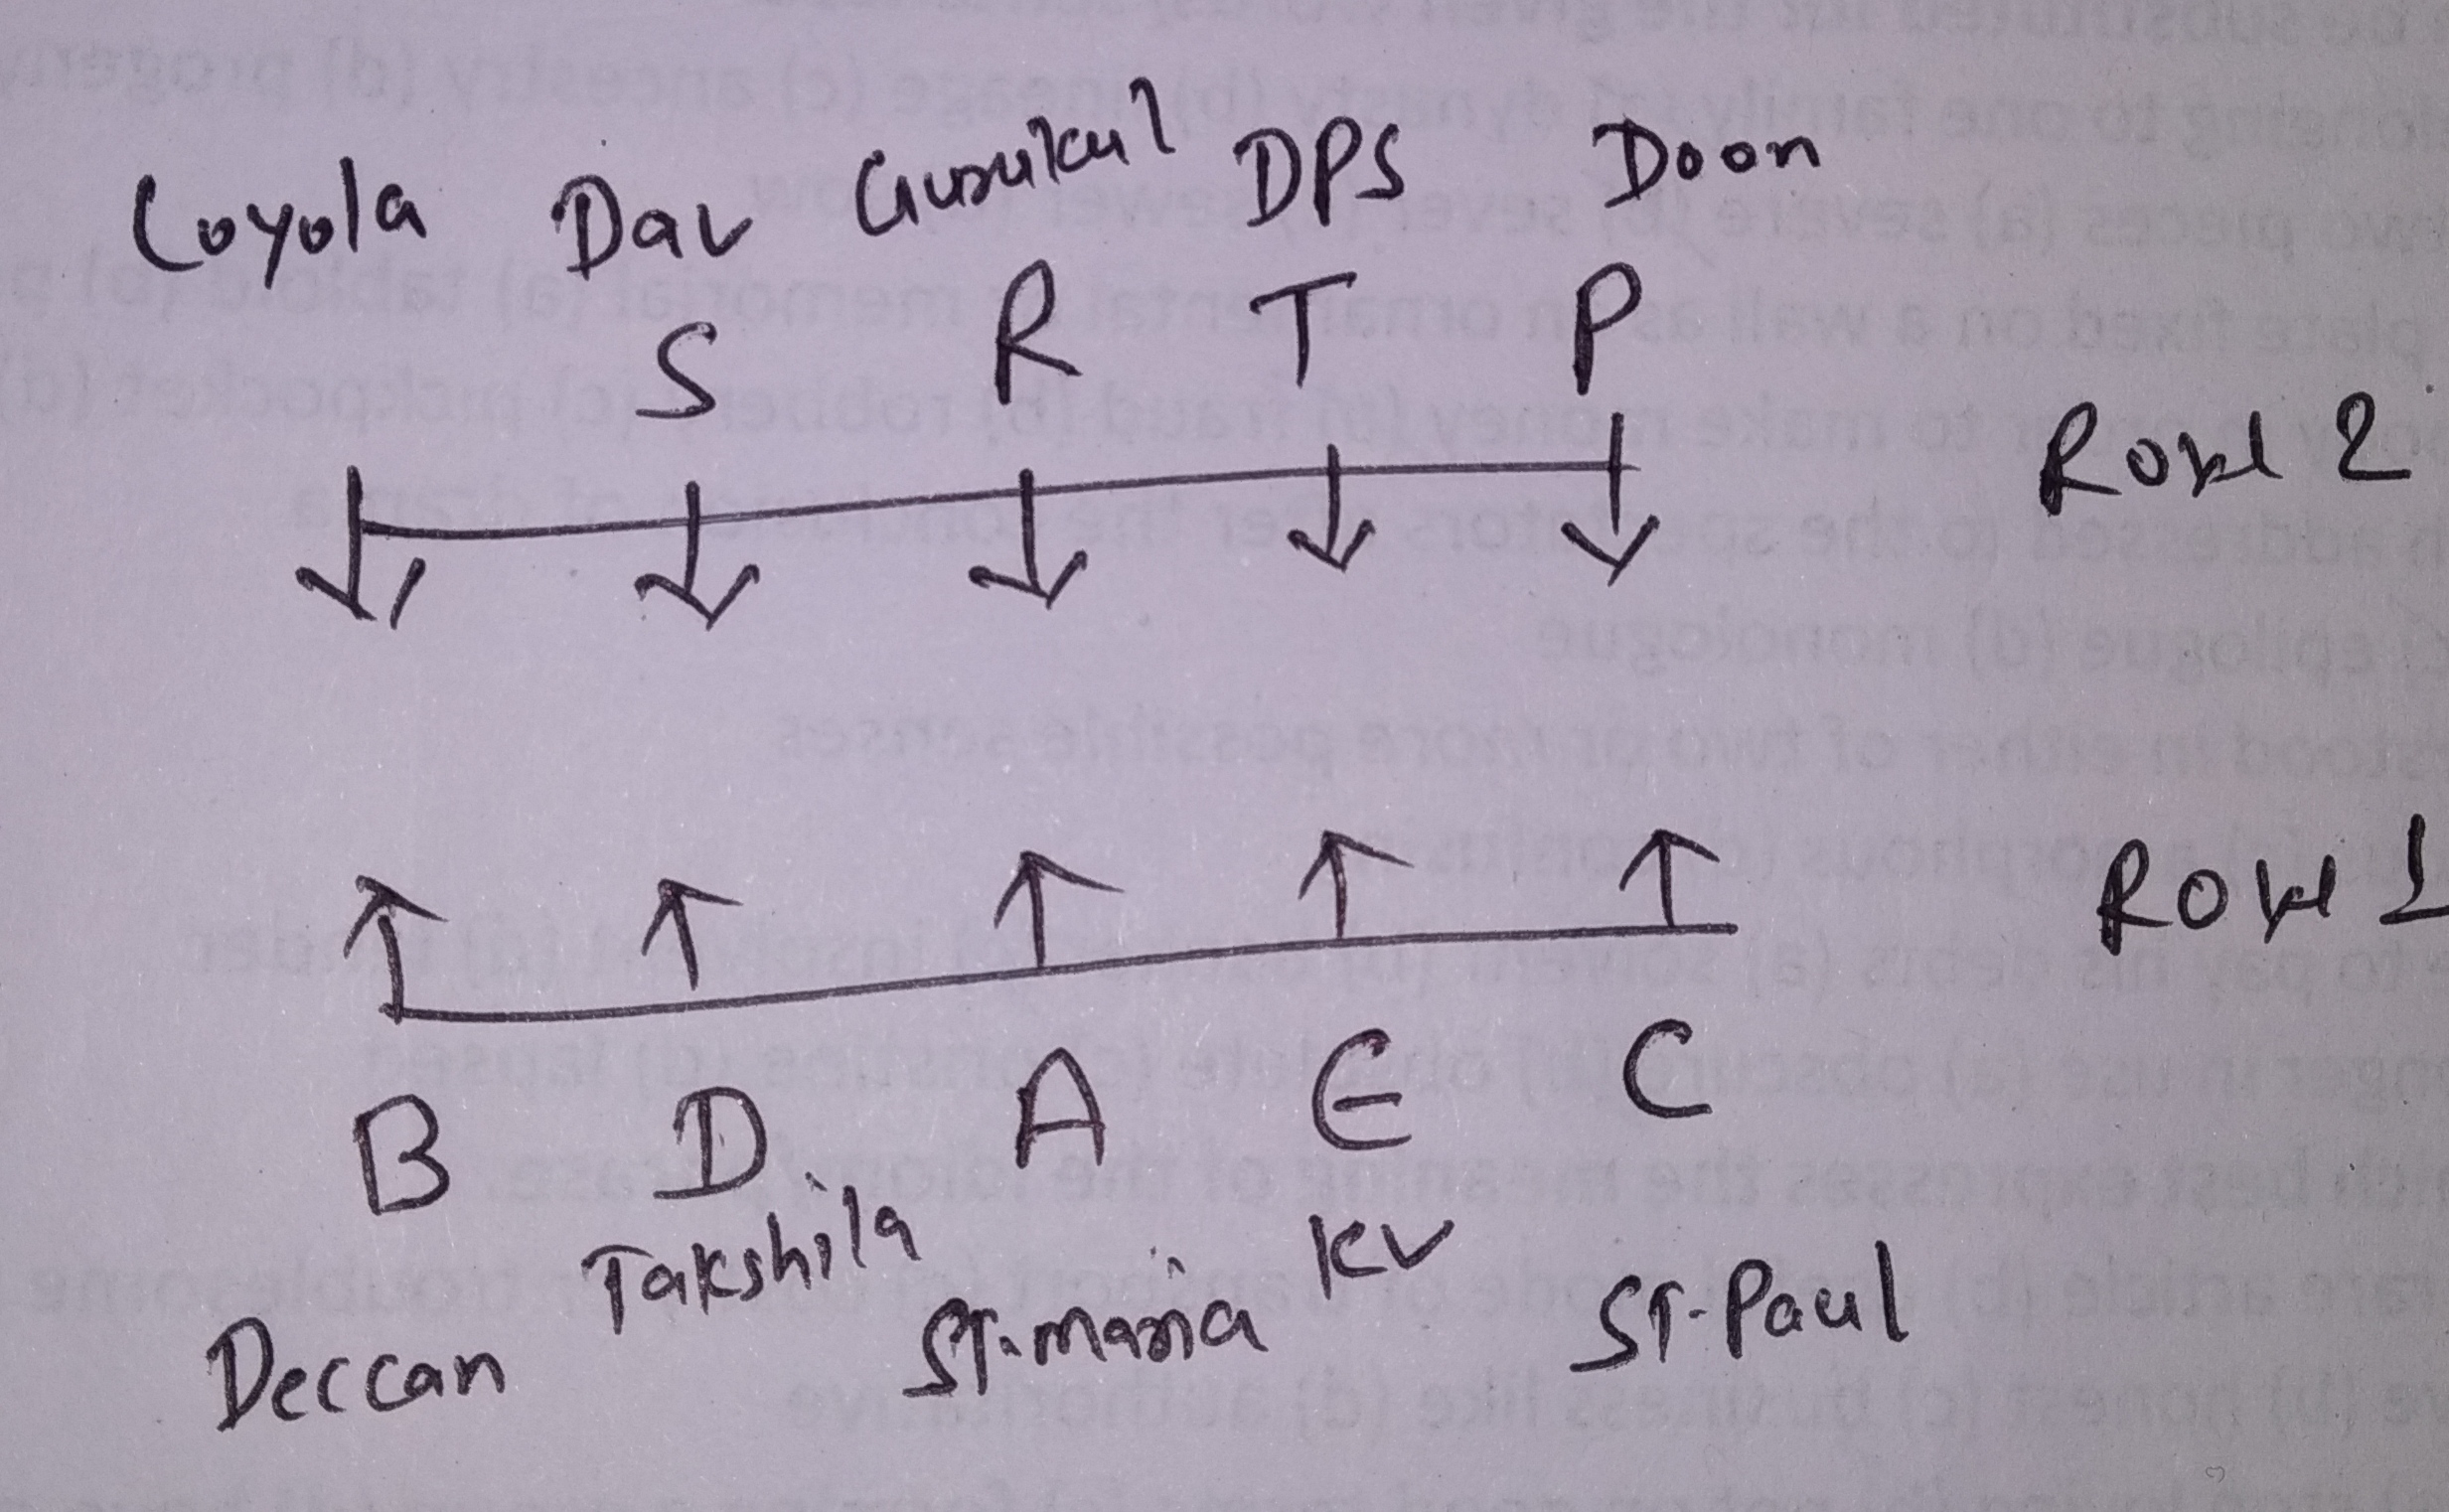 Loyola Dav Gurukul DPS Doon
S R T P
Row 2
Row 1
B D A E C
Deccan Takshila St.maria KV ST-Paul